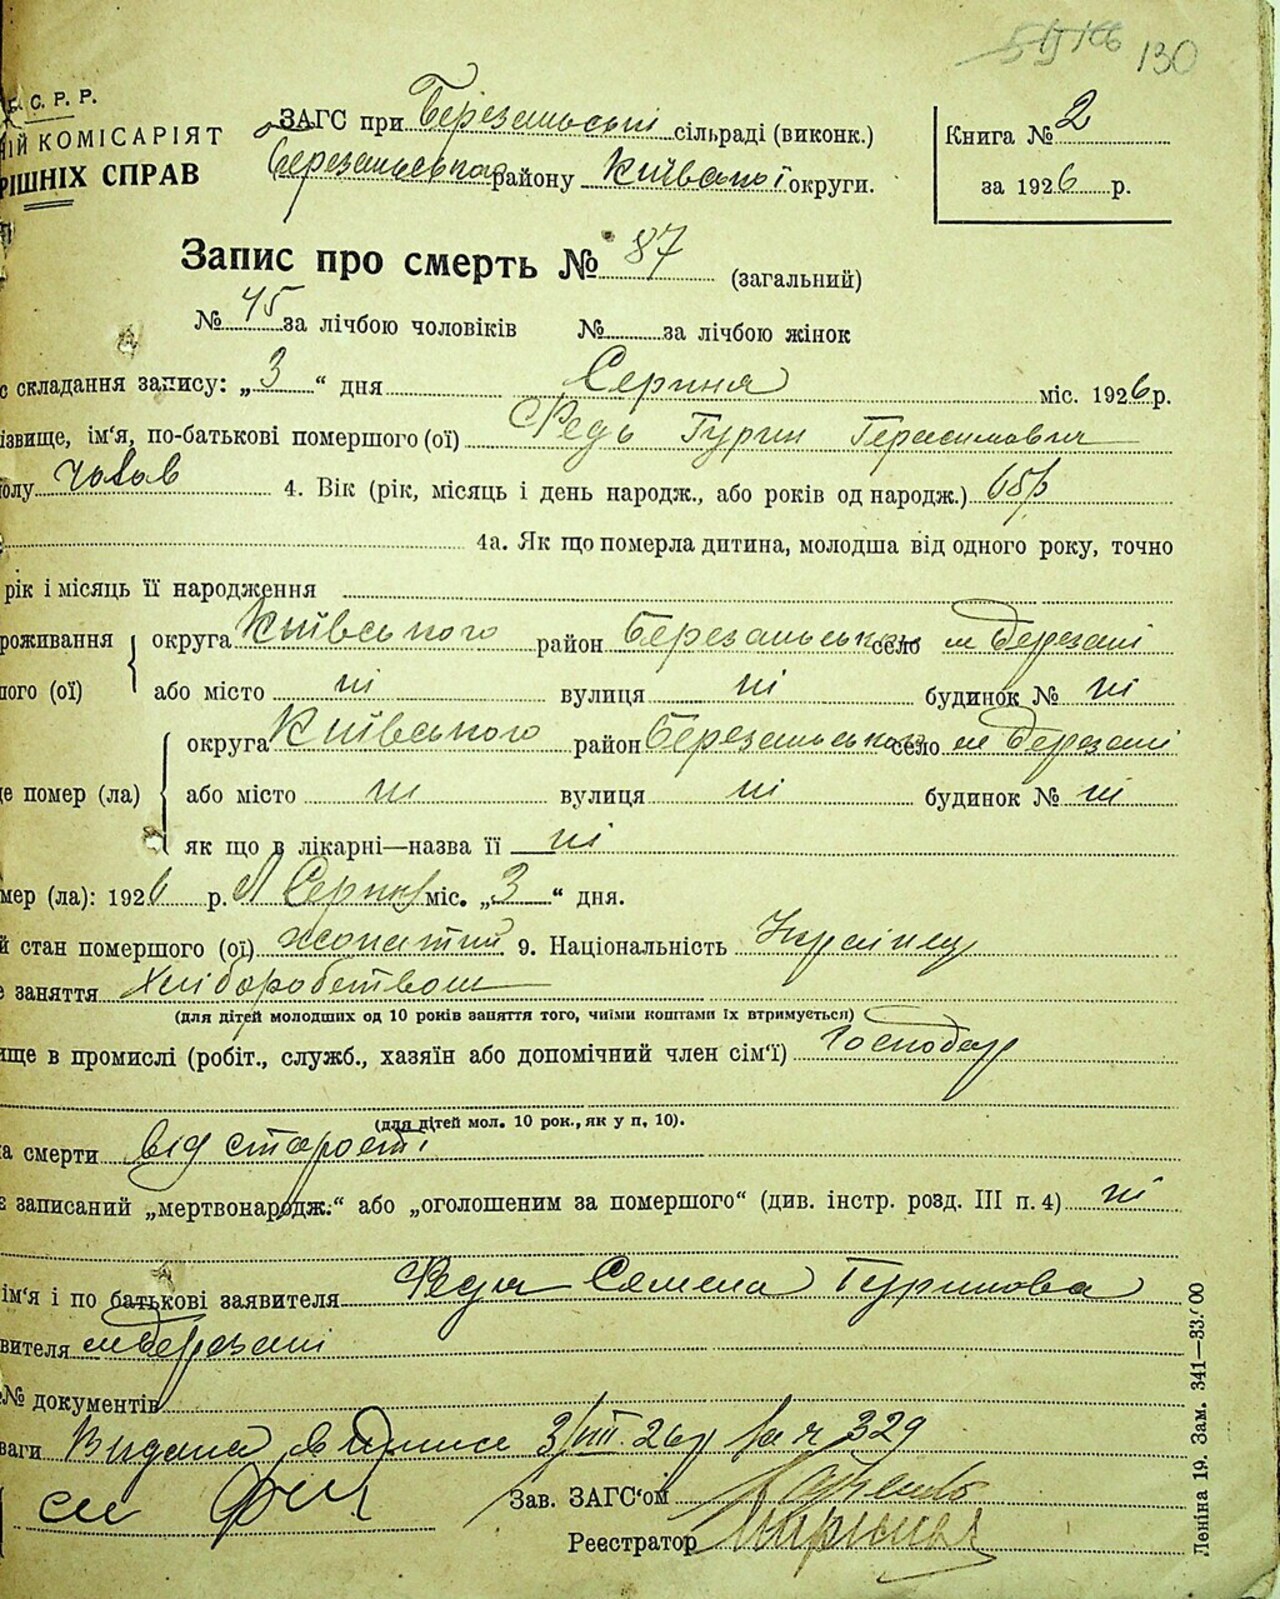 130
С. Р. Р.
ІЙ КОМІСАРІЯТ
РІШНІХ СПРАВ
ЗАГС при Берізанській сільраді (виконк.)
Березанського району Київської округи.
Книга № 2
за 1926 р.
Запис про смерть № 87 (загальний)
№ 45 за лічбою чоловіків № за лічбою жінок
с складання запису: „3“ дня Серпня міс. 1926 р.
ізвище, ім'я, по-батькові помершого (ої) Федь Гурин Герасимович
олу Чолов 4. Вік (рік, місяць і день народж., або років од народж.) 65 р
4а. Як що померла дитина, молодша від одного року, точно
рік і місяць її народження
роживання округа Київського район Березанського село м Березані
ного (ої) або місто ні вулиця ні будинок № ні
округа Київського район Березанського село м Березані
це помер (ла) або місто ні вулиця ні будинок № ні
як що в лікарні—назва її ні
мер (ла): 1926 р. Серпня міс. „3“ дня.
й стан помершого (ої) жонатий 9. Національність Українец
е заняття Хліборобством
(для дітей молодших од 10 років заняття того, чиїми коштами їх втримується)
ище в промислі (робіт., служб., хазяїн або допомічний член сім'ї) Господар
(для дітей мол. 10 рок., як у п. 10).
а смерти від старості
є записаний „мертвонародж.“ або „оголошеним за помершого“ (див. інстр. розд. III п. 4) ні
ім'я і по батькові заявителя Федя Семена Гуринова
вителя м Березані
№ документів
ваги Видана випис 3/VIII. 26 р за ч 329
Зав. ЗАГС'ом
Реєстратор
Леніна 19. Зам. 341—33.000